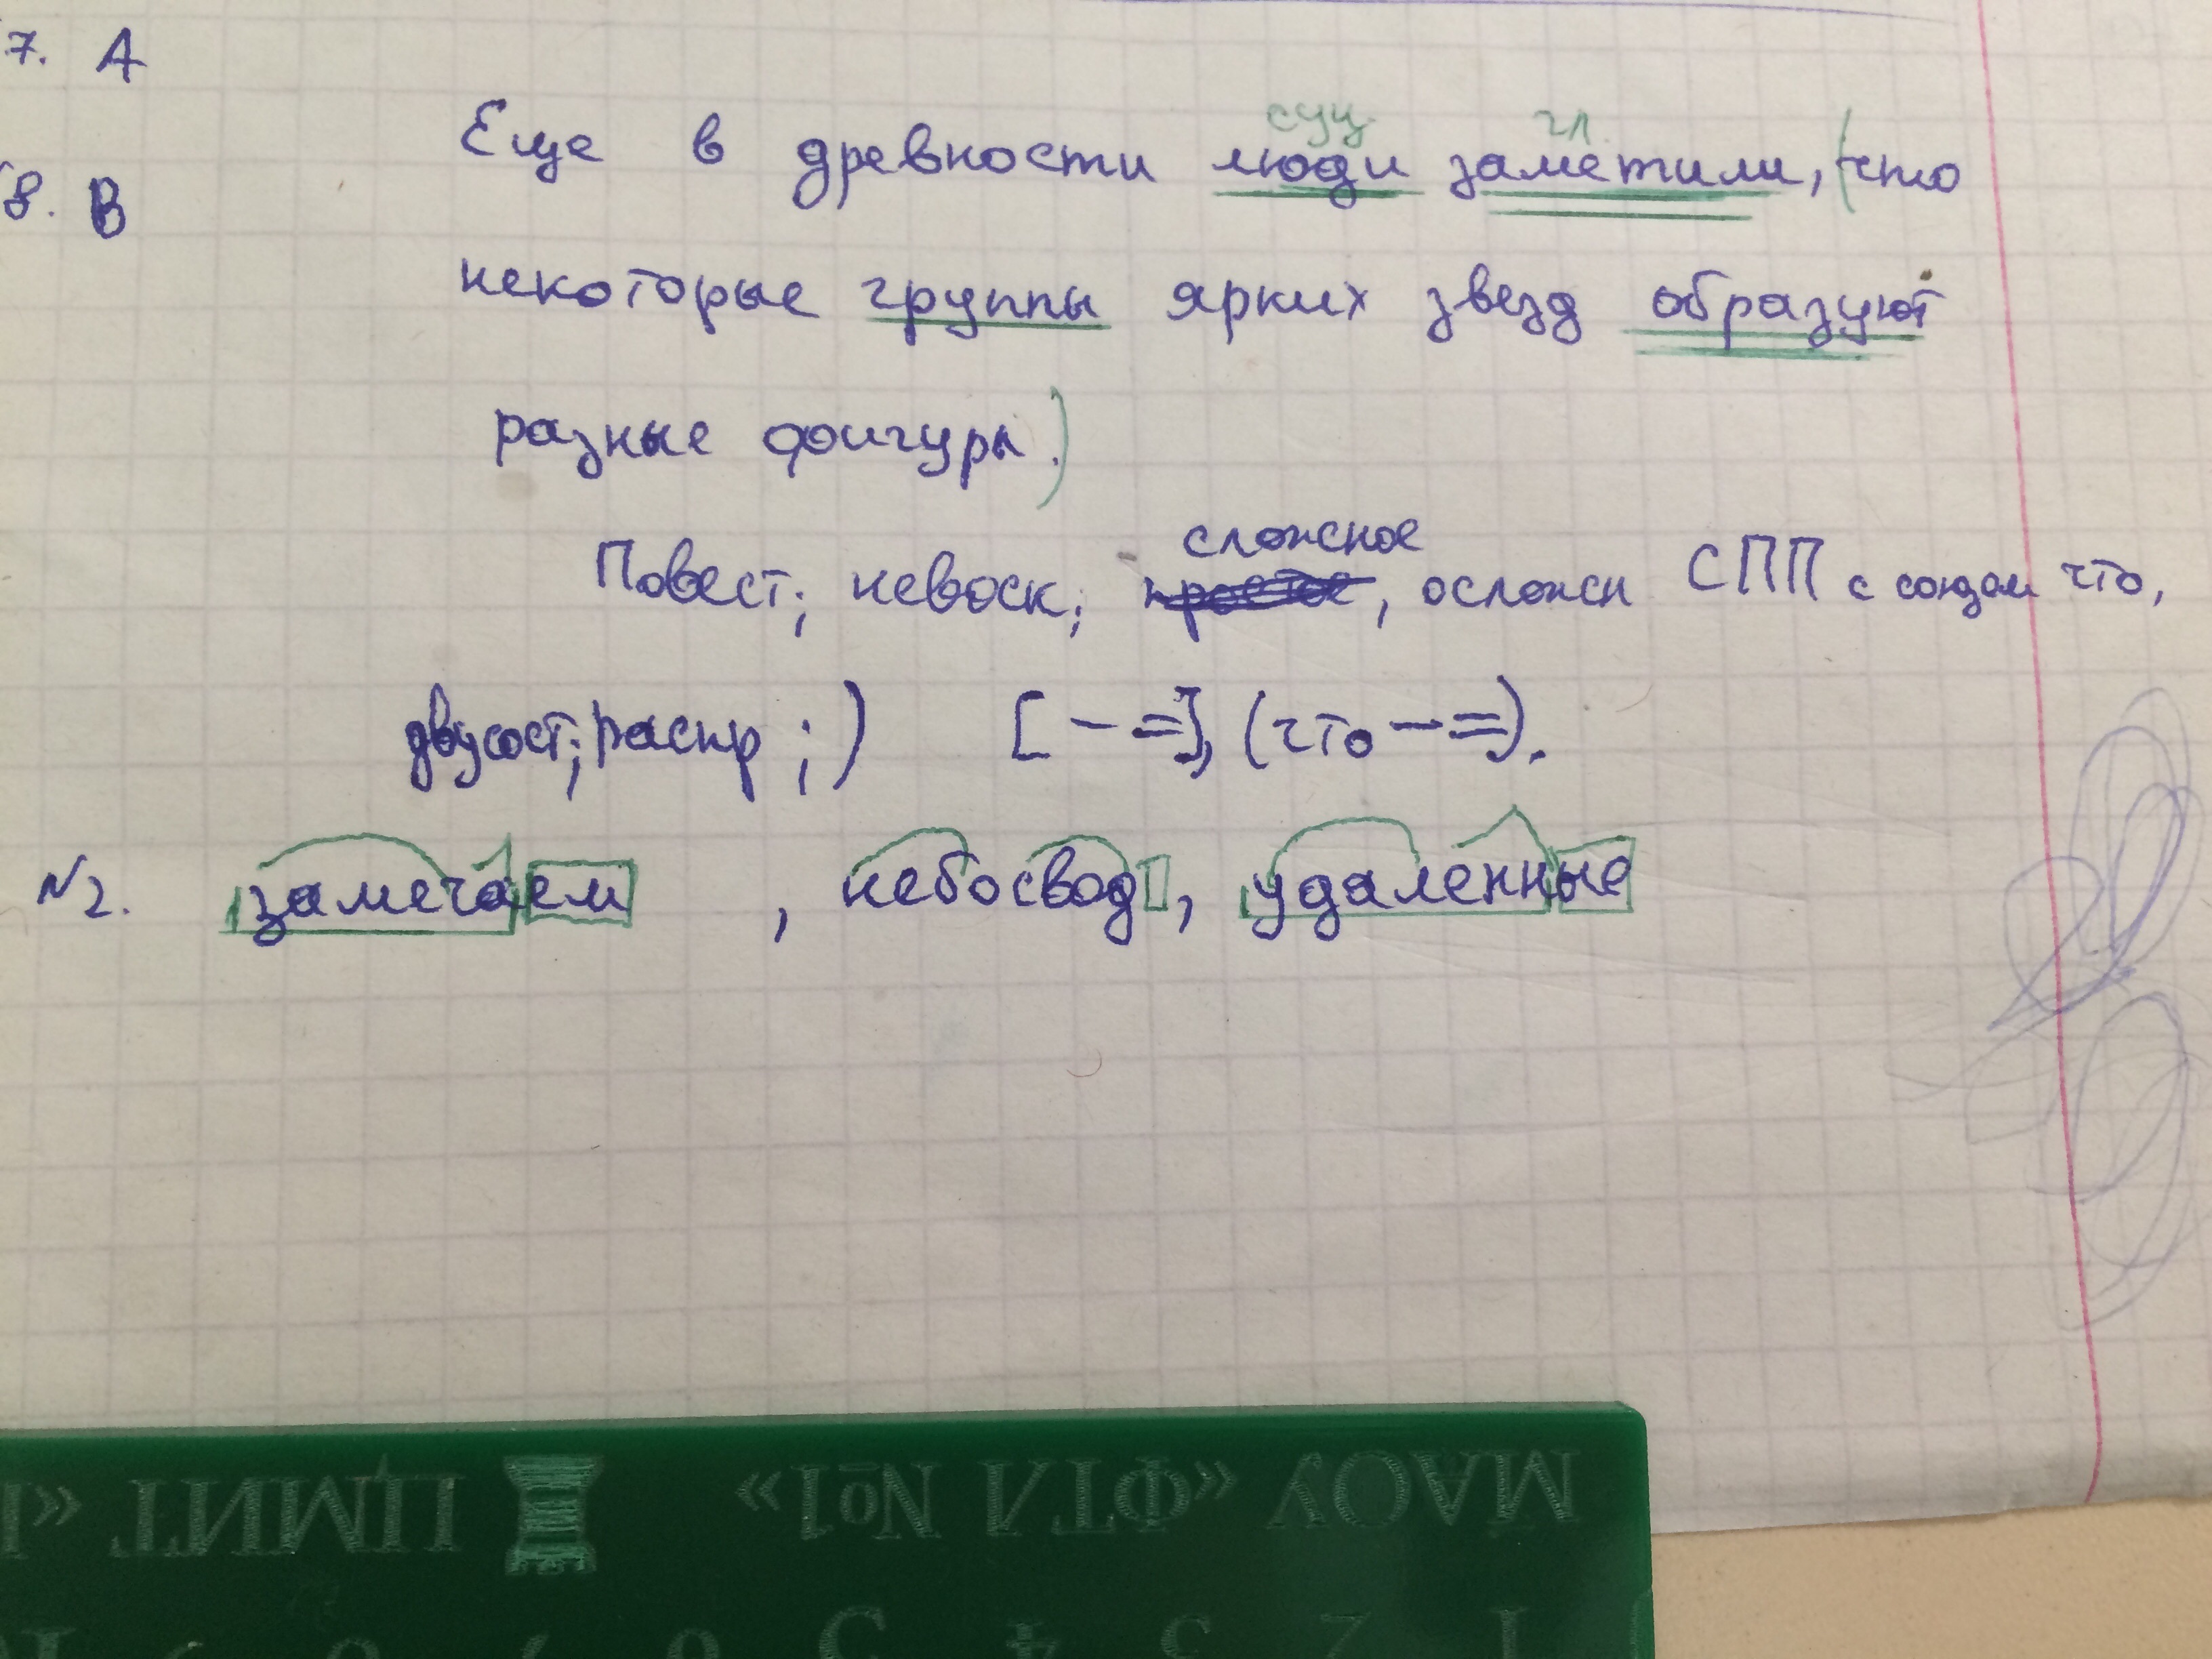 7. А
сущ. гл.
Еще в древности люди заметили, (что
8. В
некоторые группы ярких звезд образуют
разные фигуры.)
сложное
Повест; невоск; простое, осложн СПП с союзом что,
двусост; распр ;) [ – =], (что – =).
№2. замечаем , небосвод , удаленные
МАОУ «ФТЛ №1» ЦМИТ «
1 2 3 4 5 6 7 8 9 10